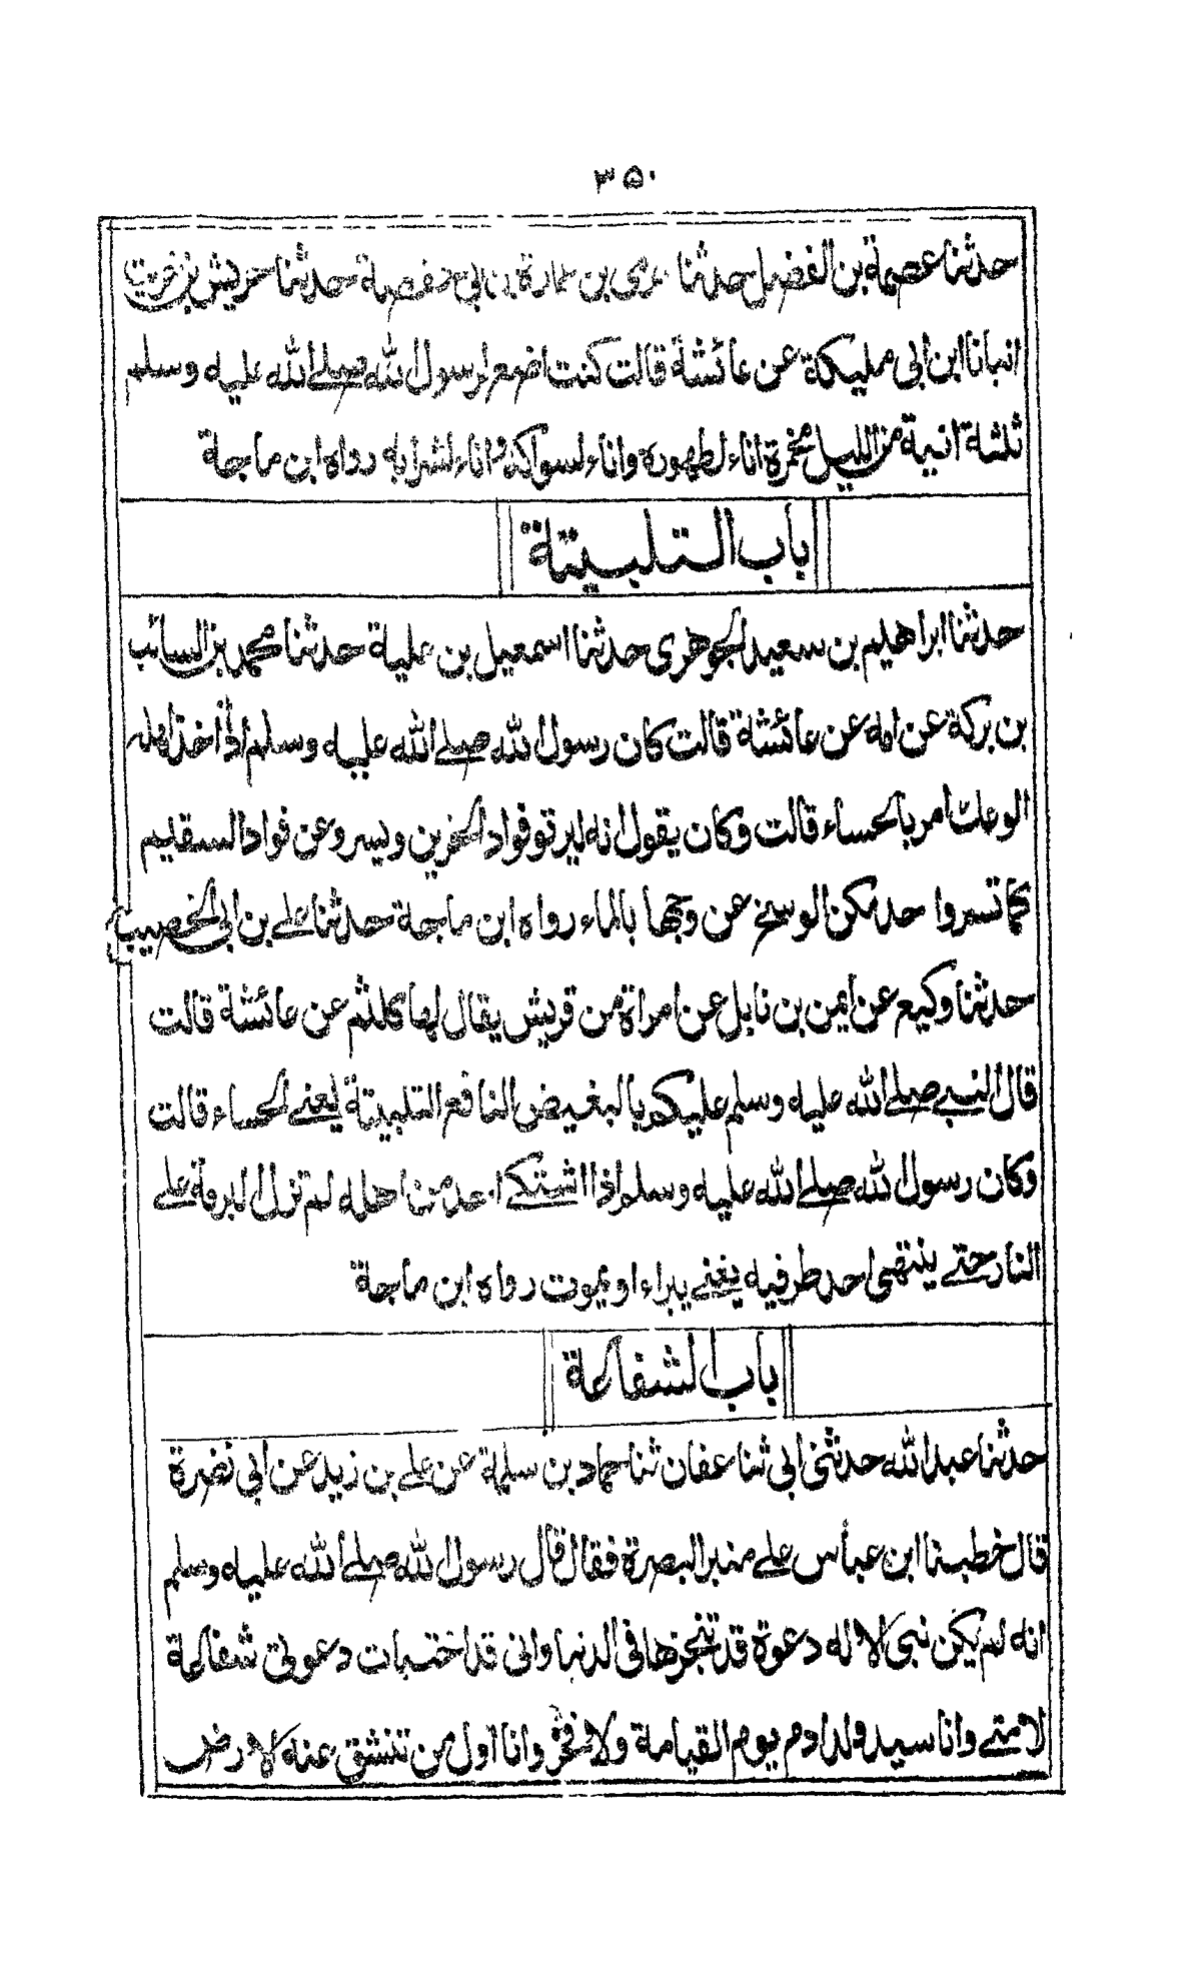 ۳۵۰
حدثنا عصمة بن الفضل حدثنا حرمى بن عمارة بن ابى حفصة حدثنا حريش بن خريت
انبانا ابن ابى مليكة عن عائشة قالت كنت اضع لرسول الله صلى الله عليه وسلم
ثلثة انية من الليل مخمرة اناء لطهوره واناء لسواكه واناء لشرابه رواه ابن ماجة
باب التلبيتة
حدثنا ابراهيم بن سعيد الجوهرى حدثنا اسمعيل بن علية حدثنا محمد بن السائب
بن بركة عن امه عن عائشة قالت كان رسول الله صلى الله عليه وسلم اذا اخذ اهله
الوعك امر بالحساء قالت وكان يقول انه ليرتو فواد الحزين ويسرو عن فواد السقيم
كما تسروا حدكن الوسخ عن وجهها بالماء رواه ابن ماجة حدثنا على بن ابى الخصيب
حدثنا وكيع عن ايمن بن نابل عن امراة من قريش يقال لها كلثم عن عائشة قالت
قال النبى صلى الله عليه وسلم عليكم بالبغيض النافع التلبيتة يعنى الحساء قالت
وكان رسول الله صلى الله عليه وسلم اذا اشتكى احد من اهله لم تزل البرمة على
النار حتى ينتهى احد طرفيه يعنى يبراء او يموت رواه ابن ماجة
باب الشفاعة
حدثنا عبد الله حدثنى ابى ثنا عفان ثنا حماد بن سلمة عن على بن زيد عن ابى نضرة
قال خطبنا ابن عباس على منبر البصرة فقال قال رسول الله صلى الله عليه وسلم
انه لم يكن نبى الا له دعوة قد تنجزها فى الدنيا وانى قد اختبات دعوتى شفاعة
لامتى وانا سيد ولد ادم يوم القيامة ولا فخر وانا اول من تنشق عنه الارض